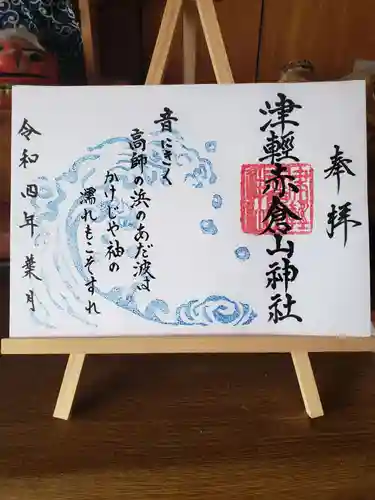 奉拝
津軽赤倉山神社
音にきく
高師の浜のあだ波は
かけじや袖の
濡れもこそすれ
令和四年葉月